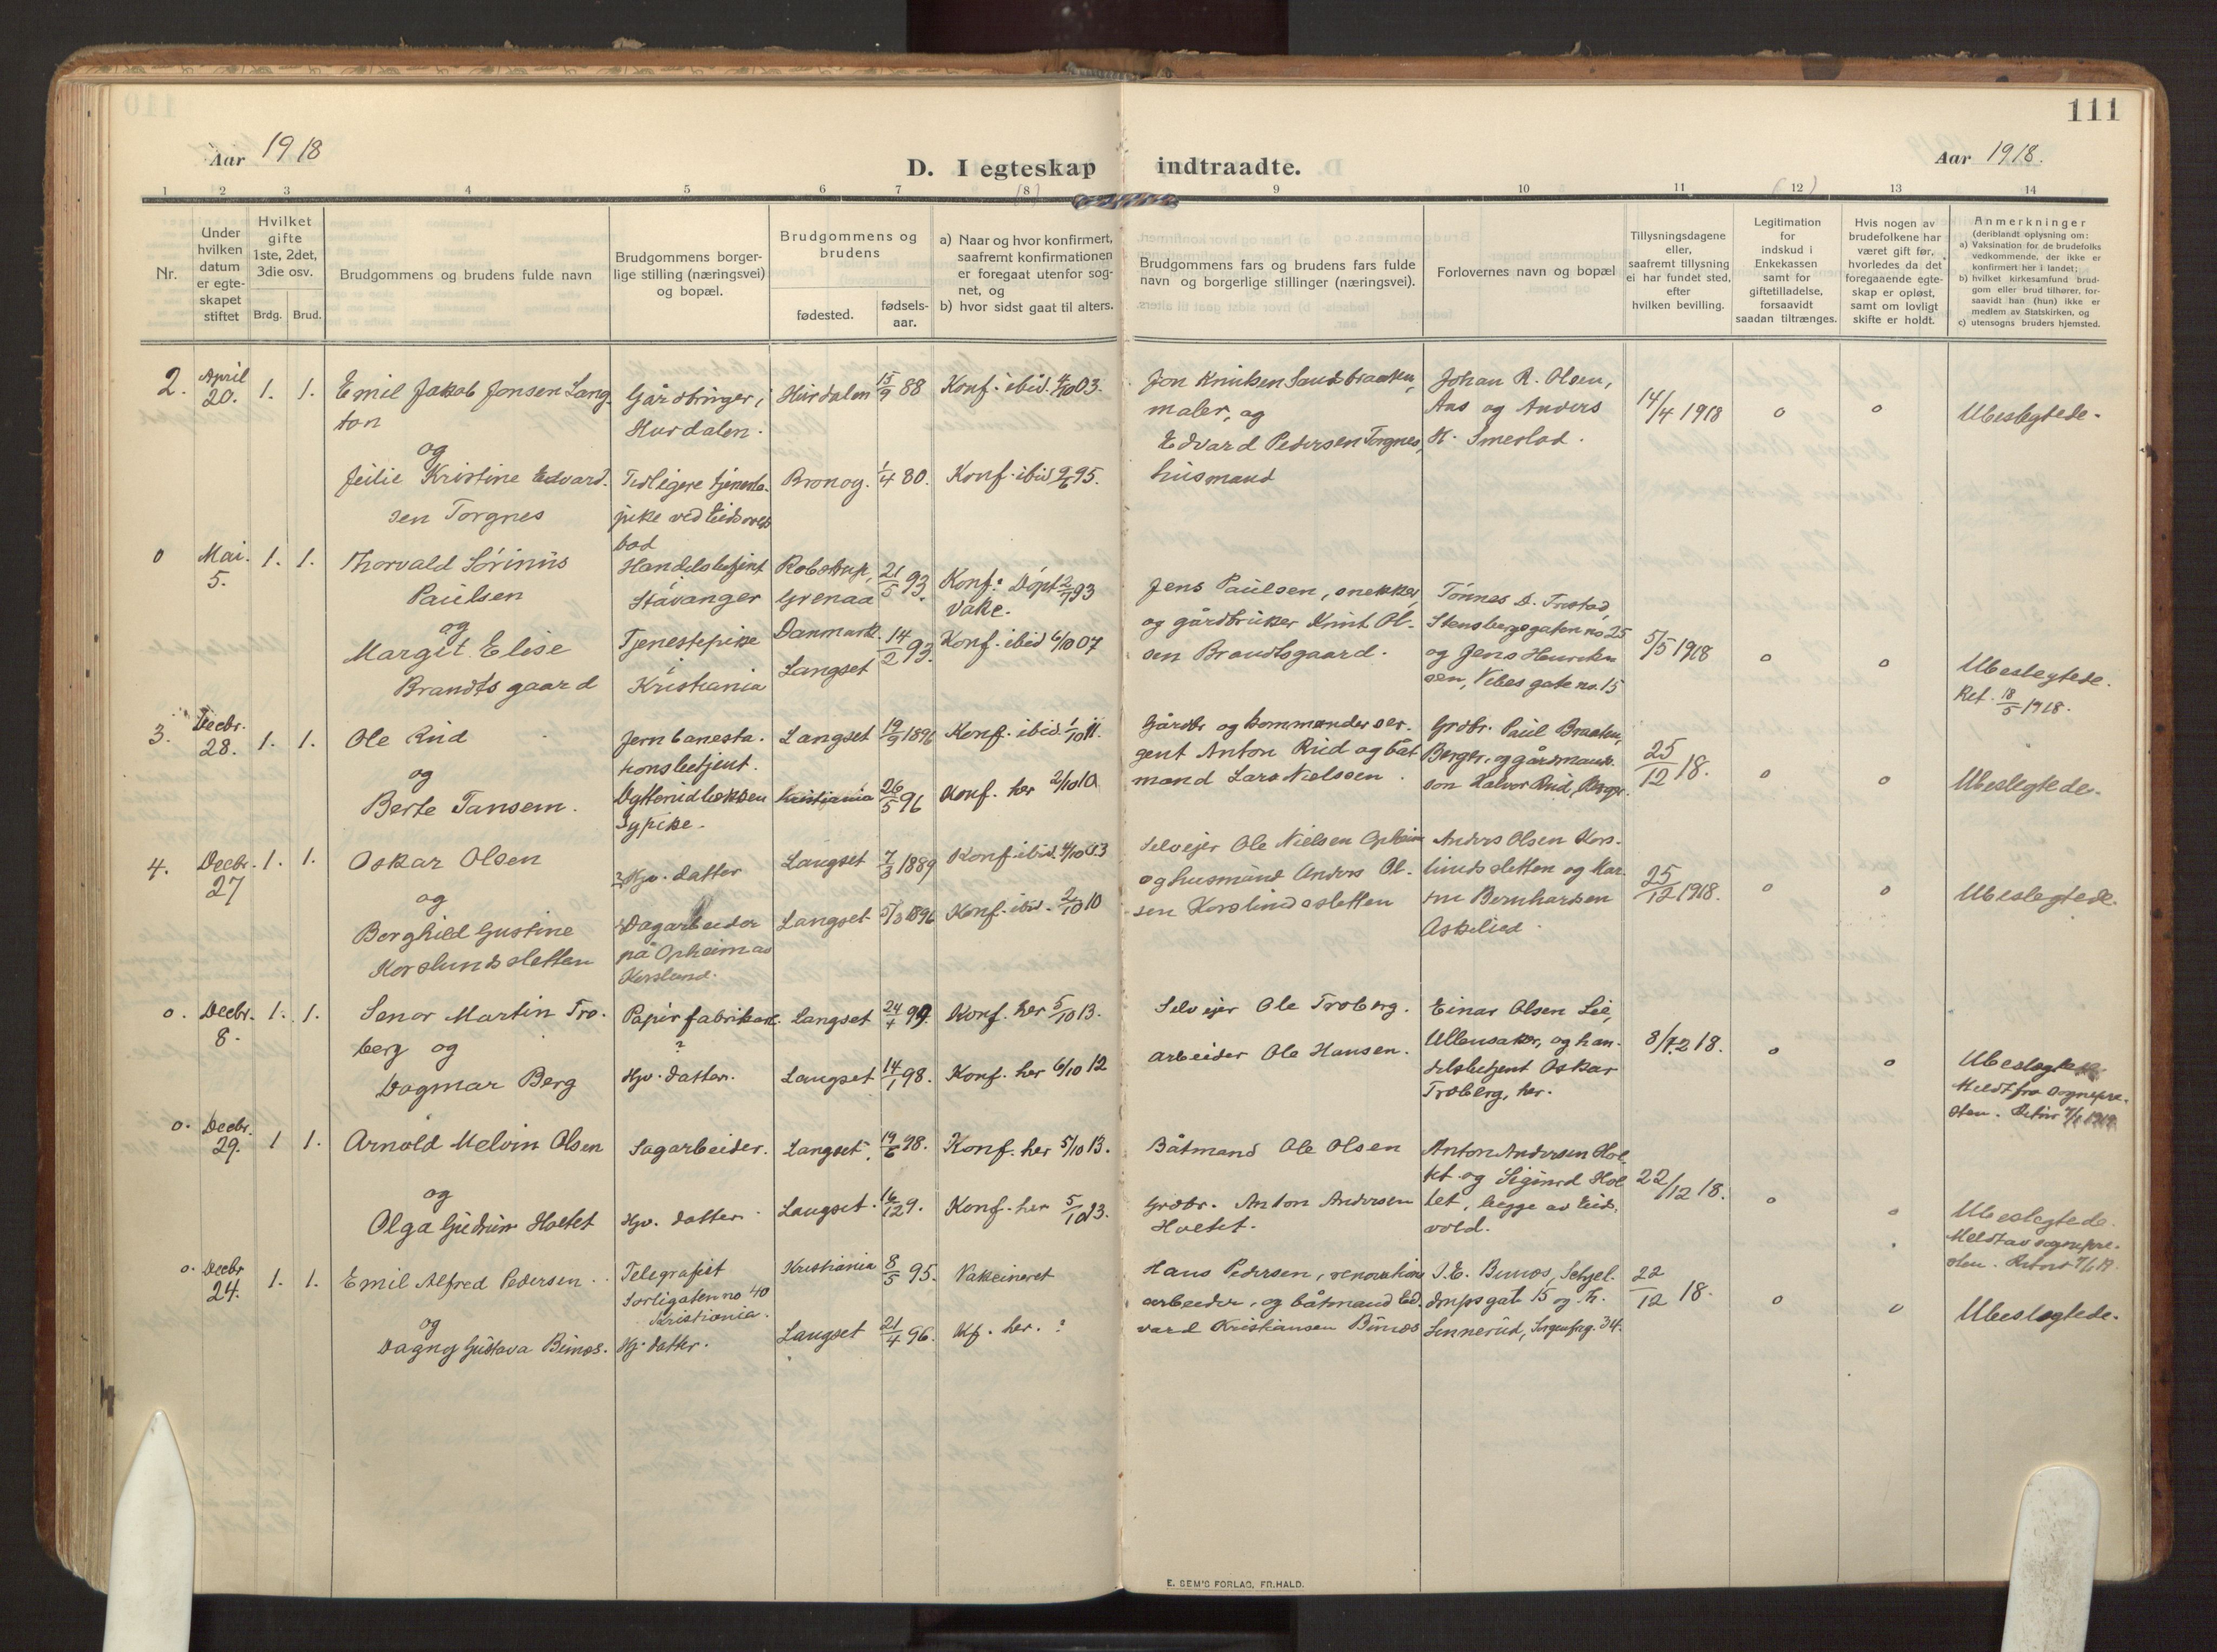 111
Aar 1918
D. I egteskap indtraadte.
Aar 1918.
1 2 3 4 5 6 7 (8) 9 10 11 (12) 13 14
Nr.
Under hvilken datum er egte-skapet stiftet
Hvilket gifte 1ste, 2det, 3die osv.
Brdg. Brud.
Brudgommens og brudens fulde navn
Brudgommens borger-lige stilling (næringsvei) og bopæl.
Brudgommens og brudens
fødested.
fødsels-aar.
a) Naar og hvor konfirmert, saafremt konfirmationen er foregaat utenfor sog-net, og
b) hvor sidst gaat til alters.
Brudgommens fars og brudens fars fulde navn og borgerlige stillinger (næringsvei).
Forlovernes navn og bopæl
Tillysningsdagene eller, saafremt tillysning ei har fundet sted, efter hvilken bevilling.
Legitimation for indskud i Enkekassen samt for giftetilladelse, forsaavidt saadan tiltrænges.
Hvis nogen av brudefolkene har været gift før, hvorledes da det foregaaende egte-skap er opløst, samt om lovligt skifte er holdt.
Anmerkninger
(deriblandt oplysning om:
a) Vaksination for de brudefolks vedkommende, der ikke er konfirmert her i landet;
b) hvilket kirkesamfund brud-gom eller brud tilhører, for-saavidt han (hun) ikke er medlem av Statskirken, og
c) utensogns bruders hjemsted.
2. April 20. 1. 1. Emil Jakob Jonsen Lang-
ton
og
Kristine Edvard-
sen Torgnes
Gårdbruger i
Hurdalen.
Tidligere tjeneste-
pike ved Eidsvold
bad
Hurdalen 15/9 88 Konf. ibid. 4/10 03.
1/4 80. Konf. ibid
95.
Jon Knutsen Sandbraaten,
maler, og
Edvard Pedersen Torgnes,
husmand
Johan R. Olsen,
Aas og Anders
K. Smestad.
14/4 1918 o o Ubeslegtede.
o Mai. 5. 1. 1. Thorvald Sörinus
Paulsen
og
Margit Elise
Brandtsgaard
Handelsbetjent
Stavanger
Tjenestepike
i
Kristiania
Robstrup,
Grenaa
Danmark.
Langset
21/5 93.
14/2 93.
Konf: Döpt 2/7 93
Vake.
Konf. ibid 6/10 07
Jens Paulsen, snekker,
og gårdbruker Knut Ol-
sen Brandtsgaard.
Tönnes D. Trostad,
Stensbergsgaten no 25
og Jens Henrik-
sen, Vibes gate no. 15
5/5 1918 o o Ubeslegtede.
Ret. 18/5 1918.
3. Decbr. 28. 1. 1. Ole Rud
og
Berte Tansem.
Jernbanesta-
tionsbetjent.
Sypike.
Langset 19/9 1896 Konf. ibid. 1/10 11.
Kristiania 26/5 96 Konf. her 2/10 10
Gårdbr og kommandersер-
gent Anton Rud og båt
mand Lars Nielsen.
Grdbr. Paul Braaten,
Berger, og gårdmands-
son Halvor Rud, Berger.
25/12 18. o o Ubeslegtede.
4. Decbr. 27 1. 1. Oskar Olsen
og
Borghild Gustine
Korslundsletten
? Hjv. datter
Dagarbeider
på Opheim av
Korslund.
Langset 7/3 1889 Konf. ibid. 4/10 03
Langset 5/3 1896 Konf. ibid. 2/10 10
Selveier Ole Nielsen Opheim
og husmand Anders Ol-
sen Korslundsletten
Anders Olsen Kors-
lundsletten og Mar-
tin Bernhardsen
25/12 1918. o o Ubeslegtede.
o. Decbr. 8. 1. 1. Senor Martin Tro-
berg og
Dagmar Berg
Papirfabrikar.
?
Hjv. datter.
Langset 24/1 99. Konf. her 5/10 13.
Langset 14/1 98. Konf. her 6/10 12
Selveier Ole Troberg.
Arbeider Ole Hansen.
Einar Olsen Lie,
Ullensaker, og han-
delsbetjent Oskar
Troberg, her.
8/12 18. o o Ubeslegtede.
Meldt fra sognepre-
sten.
o. Decbr. 29. 1 1. Arnold Melvin Olsen
og
Olga Gudrun Holtet
Sagarbeider.
Hjv. datter.
Langset. 19/6 98. Konf. her 5/10 13.
Langset. Konf. her 5/10 13.
Båtmand Ole Olsen
Grdbr. Anton Andersen
Holtet.
Anton Andersen Hol-
tet og Sigurd Hol
tet, begge av Eids-
vold.
22/12 18. o o Ubeslegtede.
Meldt av sognepre-
sten.
o. Decbr 24. 1. 1. Emil Alfred Pedersen.
og
Dagny Gustava Bunæs.
Telegrafist
Sorligaten no 40
Kristiania.
Hj. datter.
Kristiania 8/5 95. Vakcineret
Langset 21/4 96. Kf. her. ?
Hans Pedersen, renovations
arbeider, og båtmand Ed-
vard Kristiansen Bunæs
S. E. Bunæs, Schjel-
drupsgate 15 og Tr.
Sennerud, Sorgenfrig. 34.
22/12 18. o o Ubeslegtede.
E. SEM'S FORLAG, FR.HALD.